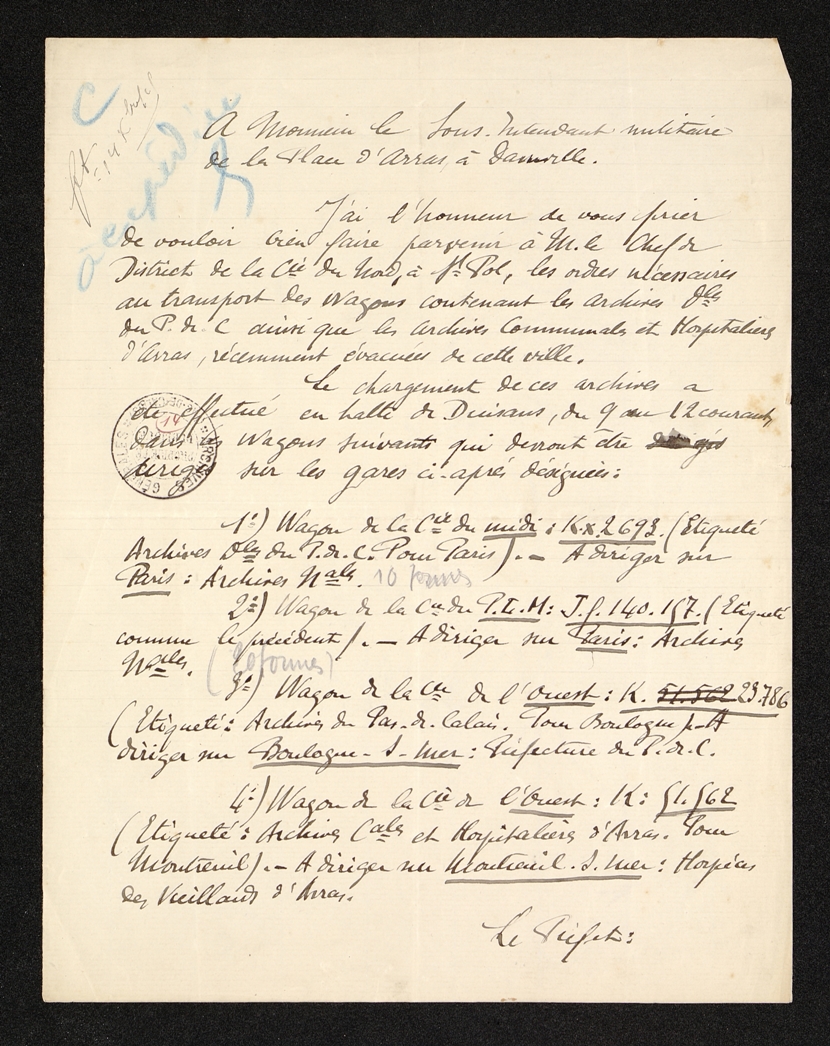 C
à expédier
A Monsieur le Sous-Intendant militaire
de la Place d'Arras, à Dainville.
J'ai l'honneur de vous prier
de vouloir bien faire parvenir à M. le Chef de
District de la Cie du Nord, à St Pol, les ordres nécessaires
au transport des Wagons contenant les archives Dles
du P. de C ainsi que les archives Communales et Hospitalières
d'Arras, récemment évacuées de cette ville.
Le chargement de ces archives a
été effectué en halte de Duisans, du 9 au 12 courant,
dans les Wagons suivants qui devront être
dirigés sur les gares ci-après désignées:
14
ARCHIVES GÉNÉRALES
1°) Wagon de la Cie du midi : K.x.2693. (Etiqueté
Archives Dles du P. de C. Pour Paris). — A diriger sur
Paris : Archives Nales. 10 tonnes
2°) Wagon de la Cie du P.L.M : J.f. 140.157. (Etiqueté
comme le précédent). — A diriger sur Paris : Archives
Nales. (20 tonnes)
3°) Wagon de la Cie de l'Ouest : K. 51.562 23.786
(Etiqueté : Archives du Pas-de-Calais. Pour Boulogne). — A
diriger sur Boulogne-S-mer : Préfecture du P. de C.
4°) Wagon de la Cie de l'Ouest : K : 51.562
(Etiqueté : Archives Cales et Hospitalières d'Arras. Pour
Montreuil). — A diriger sur Montreuil-S.mer : Hospices
des Vieillards d'Arras.
Le Préfet :